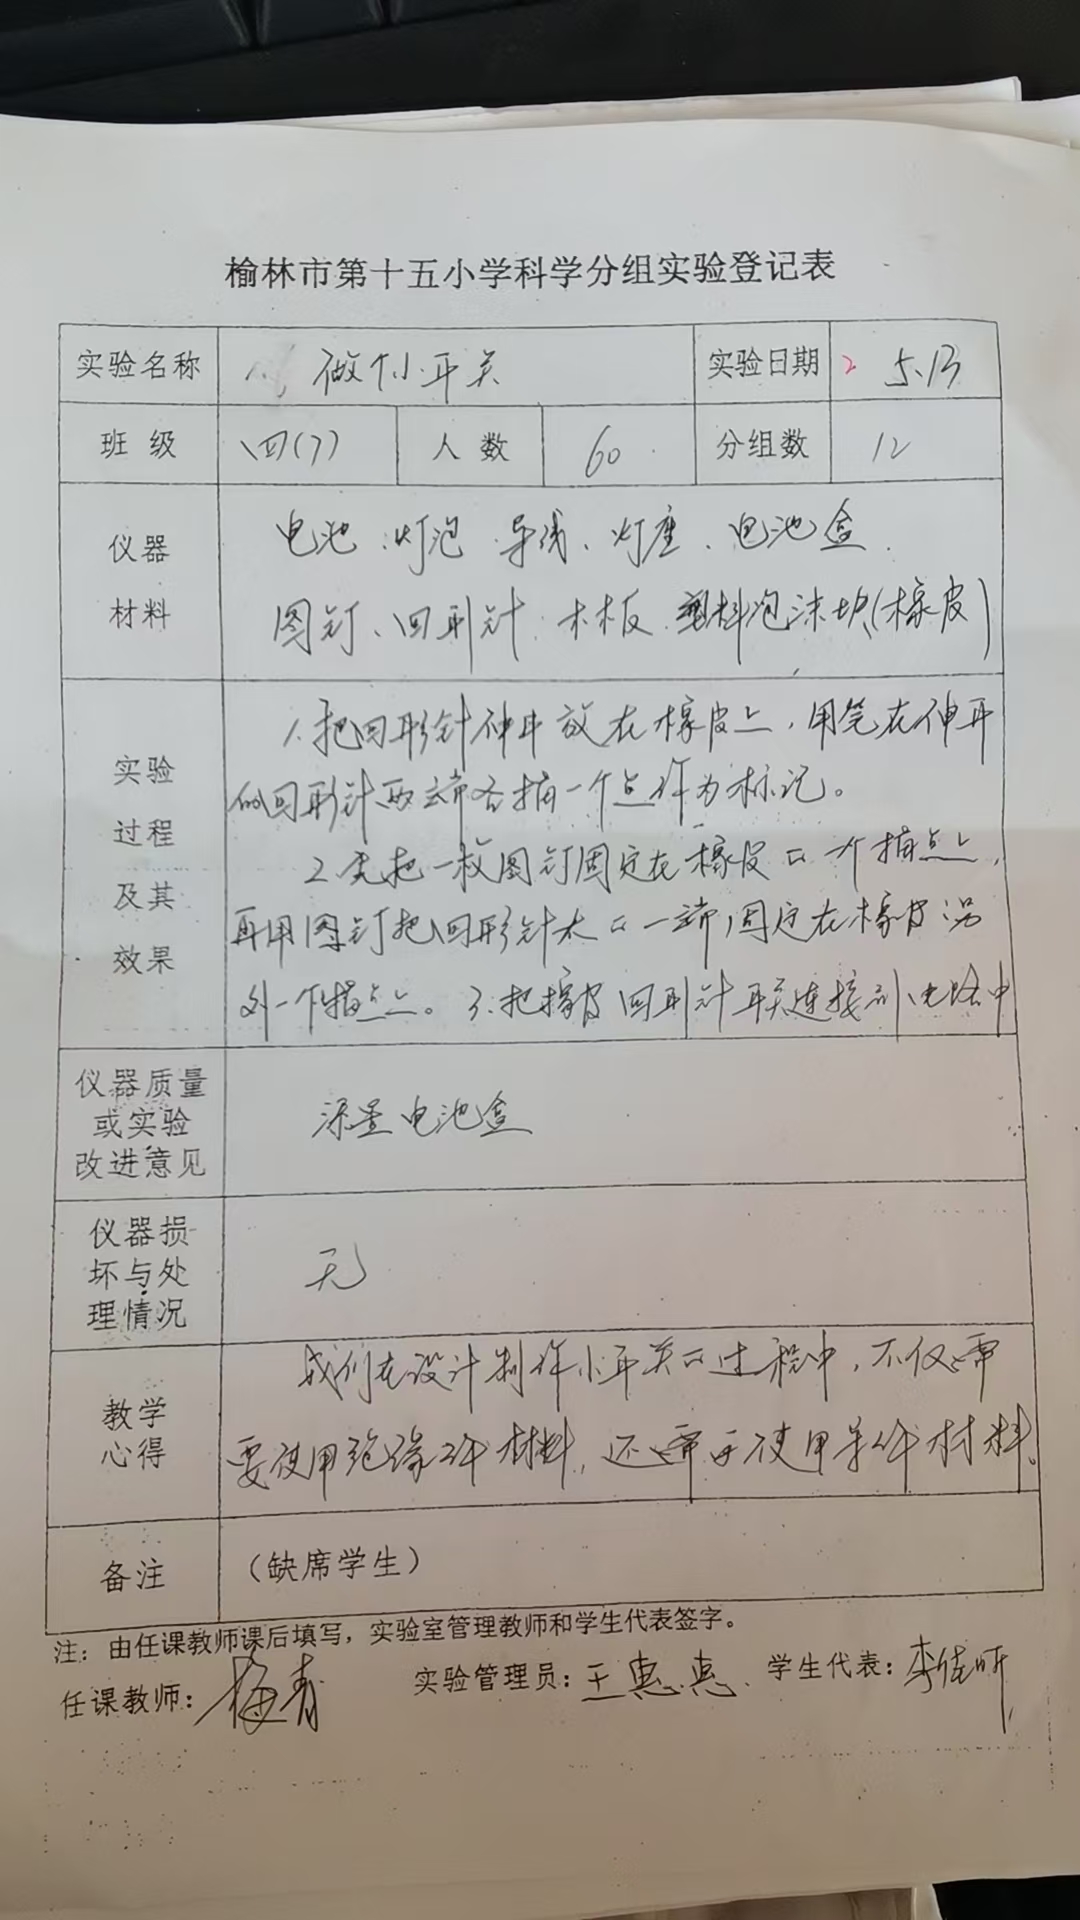 榆林市第十五小学科学分组实验登记表
实验名称 做个小开关 实验日期 5.13
班级 四(7) 人数 60 分组数 12
仪器材料
电池、灯泡、导线、灯座、电池盒、
图钉、回形针、木板、塑料泡沫块(橡皮)
实验过程及其效果
1.把回形针伸开放在橡皮上,用笔在伸开
的回形针两端各描一个点作为标记。
2.先把一枚图钉固定在橡皮的一个描点上,
再用图钉把回形针大的一端固定在橡皮另
外一个描点上。3.把橡皮回形针开关连接到电路中
仪器质量或实验改进意见
添置电池盒
仪器损坏与处理情况
无
教学心得
我们在设计制作小开关的过程中,不仅需
要使用绝缘体材料,还需要使用导体材料。
备注 (缺席学生)
注:由任课教师课后填写,实验室管理教师和学生代表签字。
任课教师: 梅青 实验管理员:王惠惠 学生代表:李佳昕